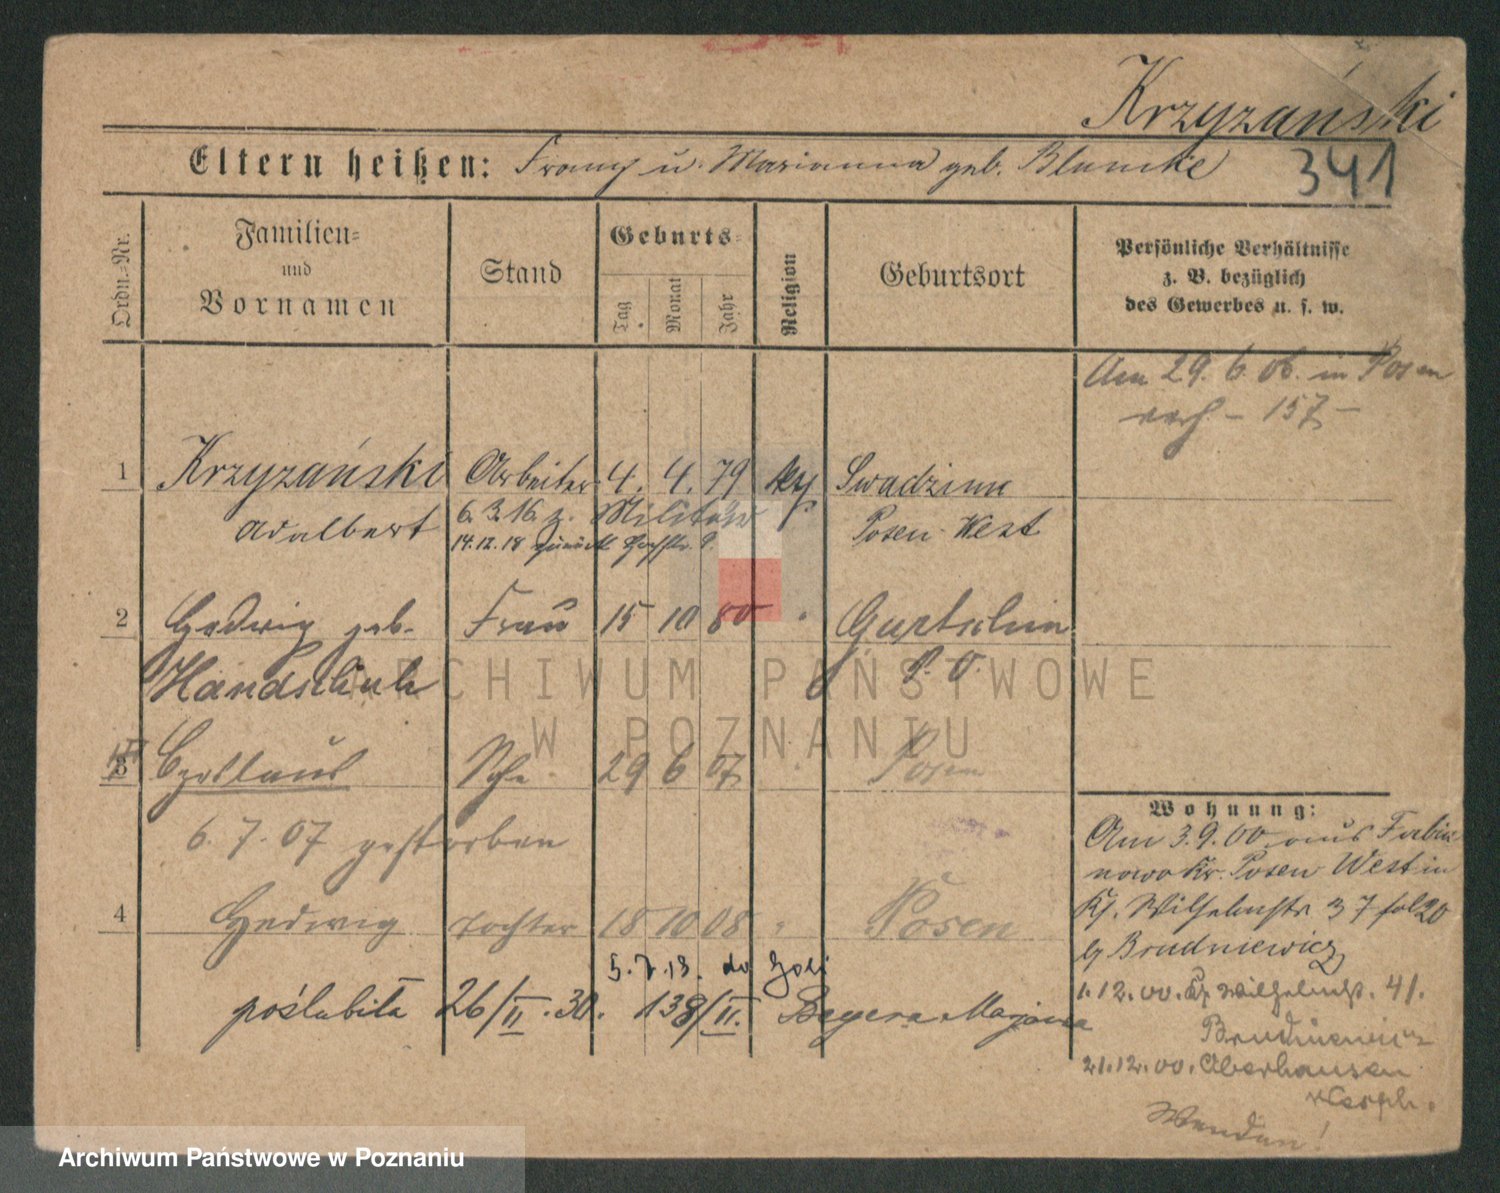 Krzyzański
341
Eltern heißen: Franz u. Marianna geb. Blumke
Ordn.-Nr.
Familien-
und
Vornamen
Stand
Geburts-
Tag
Monat
Jahr
Religion
Geburtsort
Persönliche Verhältnisse
z. B. bezüglich
des Gewerbes u. s. w.
Am 29. 6. 06. in Posen
verh. – 157 –
1 Krzyzański Arbeiter 4. 4. 79 Swadzim
Adalbert 6. 3. 16 z. Militär Posen West
14.12.18 zurück
2 Hedwig geb. Frau 15 10 80 " Gurtschin
Handschuh P. O.
3 Czeslaus 29 6 07 " Posen
6. 7. 07 gestorben
4 Hedwig Tochter 18 10 08 " Posen
5.7.13. do
poślubiła 26/II.30. 138/II. Beyera Marjana
Wohnung:
Am 3.9.00 aus
Kr. Posen West in
Wilhelmstr 37
Brudniewicz
1.12.00. Wilhelmst. 41.
Brudniewicz
21.12.00. Oberhausen
Westph.
Wenden!
ARCHIWUM PAŃSTWOWE
W POZNANIU
Archiwum Państwowe w Poznaniu